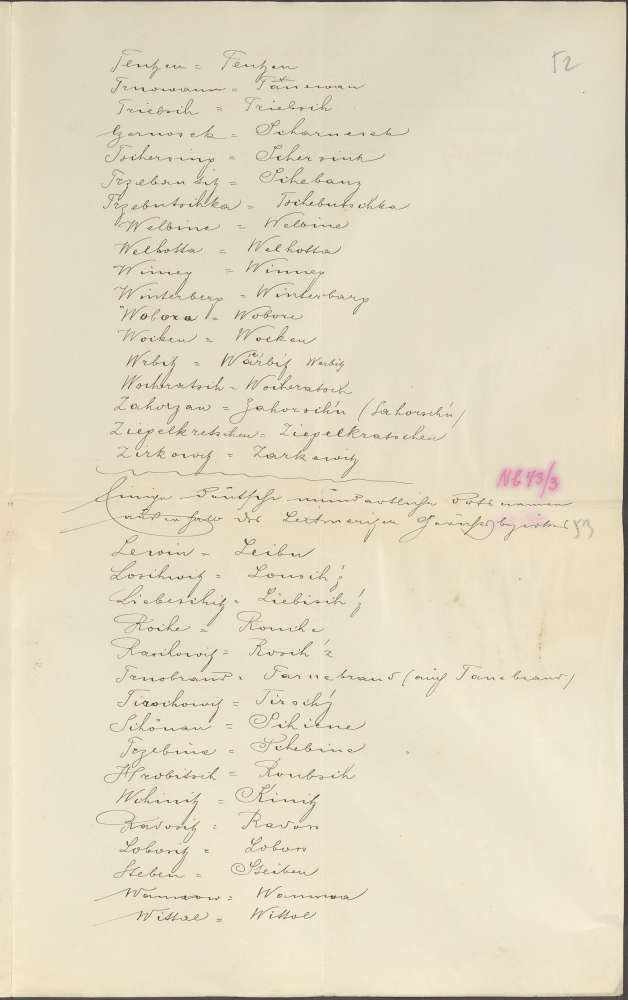 52
Tentzen = Tentzen
Trnowann = Tanewan
Triebsch = Triebsch
Gernosek = Scharnesek
Tschersing = Schersink
Trzebautitz = Schebanz
Trzebutschka = Tschebutschka
Welbine = Welbine
Welhotta = Welhotta
Winney = Winney
Winterberg = Winterbarg
Wobora = Wobore
Wocken = Wocken
Wrbitz = Warbitz Werbitz
Wocheratsch = Wocheratsch
Zahorzan = Zahorschn (Sahorschn)
Ziegelkretschen = Ziegelkratschen
Zirkowitz = Zarkewitz
NB 43/3
Einige deutsche mundartliche Ortsnamen
des Leitmeritzer Gerichtsbezirkes 53
Lewin = Leibn
Loschwitz = Lousch'z
Liebeschitz = Liebisch'z
Roche = Rouche
Raschowitz = Rosch'z
Trnobrand = Tarnebrand (auch Tanebrand)
Tirschowitz = Tirsch'z
Schönau = Schiene
Trzebine = Schebine
Hrobitsch = Roubsch
Wchinitz = Kinitz
Radositz = Rados
Lobositz = Lobos
Steben = Steiben
Wannow = Wannwa
Wittal = Wittol